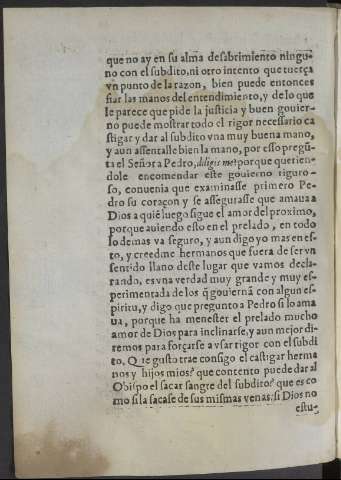 que no ay en su alma desabrimiento ningu-
no con el subdito, ni otro intento que tuerça
vn punto de la razon, bien puede entonces
fiar las manos del entendimiento, y de lo que
le parece que pide la justicia y buen gouier-
no puede mostrar todo el rigor necessario ca
stigar y dar al subdito vna muy buena mano,
y aun assentalle bien la mano, por esso pregũ
ta el Señor a Pedro, diligis me? porque querien-
dole encomendar este gouierno riguro-
so, conuenia que examinasse primero Pe-
dro su coraçon y se assegurasse que amaua a
Dios a quiẽ luego sigue el amor del proximo,
porque auiendo esto en el prelado, en todo
lo demas va seguro, y aun digo yo mas en es-
to, y creedme hermanos que fuera de ser vn
sentido llano deste lugar que vamos decla-
rando, es vna verdad muy grande y muy es-
perimentada de los q̃ gouiernã con algun es-
piritu, y digo que pregunto a Pedro si lo ama
ua, porque ha menester el prelado mucho
amor de Dios para inclinarse, y aun mejor di-
remos para forçarse a vsar rigor con el subdi
to. Que gusto trae consigo el castigar herma
nos y hijos mios? que contento puede dar al
Obispo el sacar sangre del subdito? que es co
mo si la sacase de sus mismas venas: si Dios no
estu-